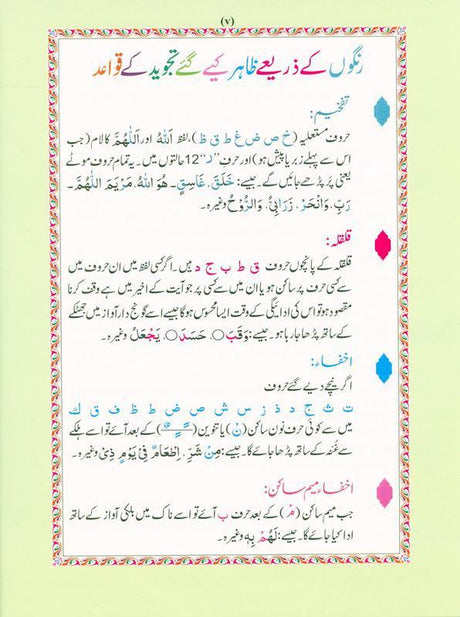 (v)
رنگوں کے ذریعے ظاہر کیے گئے تجوید کے قواعد
تفخیم:
حروف مستعلیہ (خ ص ض غ ط ق ظ)، لفظ اَللہُ اور اَللّٰهُمَّ کا لام (جب
اس سے پہلے زبر یا پیش ہو) اور حرف ”ر“ 12 حالتوں میں۔ یہ تمام حروف موٹے
یعنی پُر پڑھے جائیں گے۔ جیسے: خَلَقَ، غَاسِقٍ۔ هُوَ اللهُ، مَرْيَمَ اللّٰهُمَّ۔
رَبِّ، وَانْحَرْ، زَرَابِيُّ، وَالرُّوْحُ وغیرہ۔
قلقلہ:
قلقلہ کے پانچوں حروف ق ط ب ج د ہیں۔ اگر کسی لفظ میں ان حروف میں
سے کسی حرف پر ساکن ہو یا ان میں سے کسی پر جو آیت کے اخیر میں ہے وقف کرنا
مقصود ہو تو اس کی ادائیگی کے وقت ایسا محسوس ہوگا جیسے اسے گونج دار آواز میں جھٹکے
کے ساتھ پڑھا جا رہا ہو۔ جیسے: وَقَبَ○، حَسَدَ○، يَجْعَلُ وغیرہ۔
اخفاء:
اگر نیچے دیے گئے حروف
ت ث ج د ذ ز س ش ص ض ط ظ ف ق ك
میں سے کوئی حرف نون ساکن (نْ) یا تنوین (ـًـٍـٌ) کے بعد آئے تو اسے ہلکے
سے غنہ کے ساتھ پڑھا جائے گا۔ جیسے: مِنْ شَرِّ، اِطْعَامٌ فِيْ يَوْمٍ ذِيْ وغیرہ۔
اخفاء میم ساکن:
جب میم ساکن (مْ) کے بعد حرف ب آئے تو اسے ناک میں ہلکی آواز کے ساتھ
ادا کیا جائے گا۔ جیسے: لَهُمْ بِهٖ وغیرہ۔